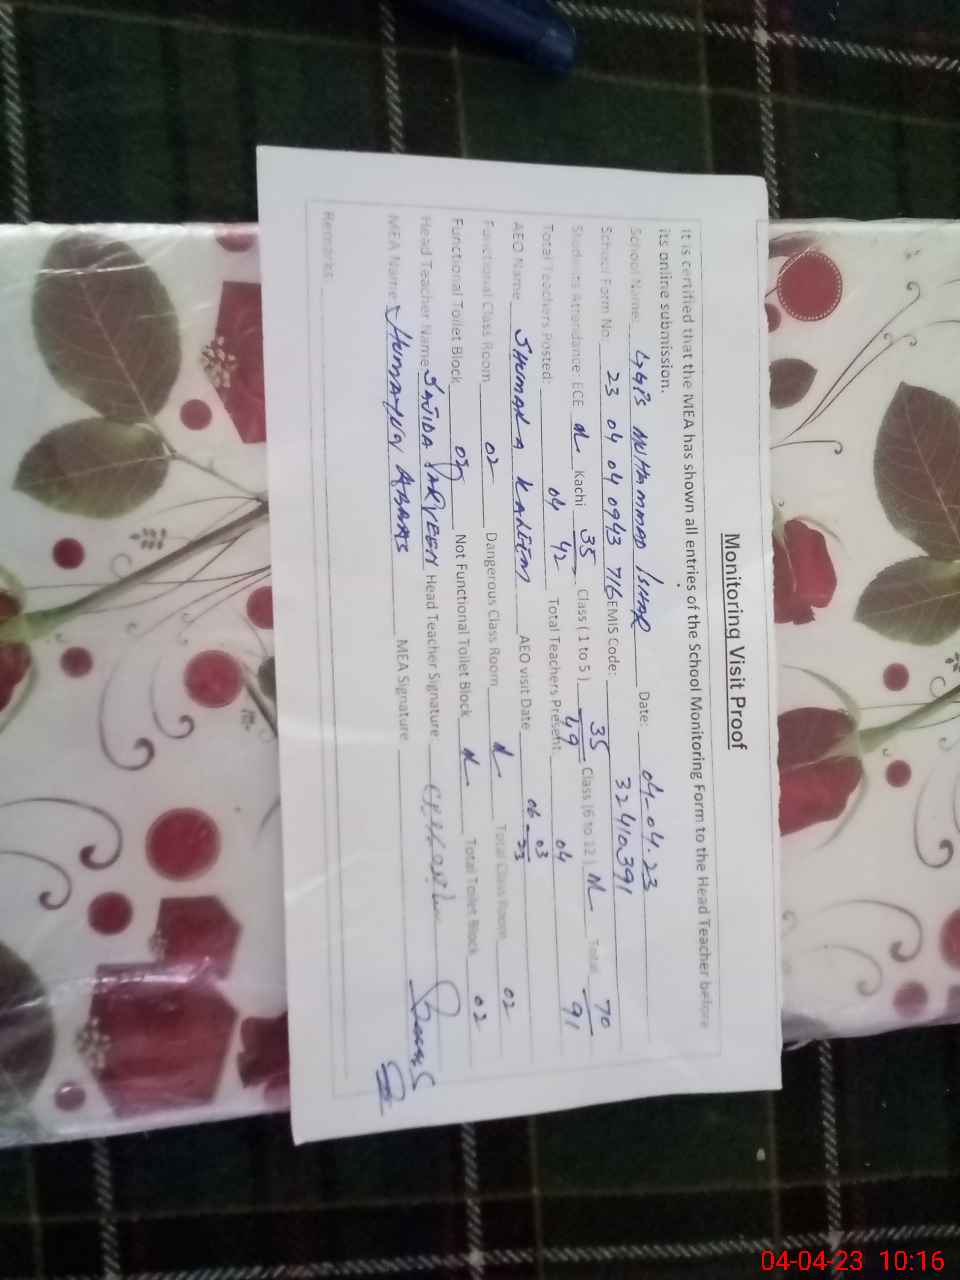 Monitoring Visit Proof
It is certified that the MEA has shown all entries of the School Monitoring Form to the Head Teacher before
its online submission.
School Name: MUHAMMAD ISHAQ Date: 04-04-23
School Form No: 23 04 04 0943 716 EMIS Code: 32410391
Students Attendance: ECE Kachi 35/42 Class (1 to 5) 35/49 Class (6 to 12) Total 70/91
Total Teachers Posted: 04 Total Teachers Present: 04
AEO Name SHUMAILA KALEEM AEO visit Date 06-03-23
Functional Class Room 02 Dangerous Class Room Total Class Room 02
Functional Toilet Block Not Functional Toilet Block Total Toilet Block 02
Head Teacher Name SAJIDA PARVEEN Head Teacher Signature:
MEA Name HUMAYUN ABBAS MEA Signature
Remarks:
04-04-23 10:16